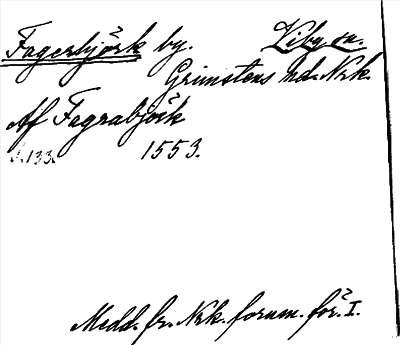 Fagerbjörk by. Viby sn.
Grimstens hd. Nrk.
Af Fagrabjörk
s. 133. 1553.
Medd. fr. Nrk. fornm. för. I.